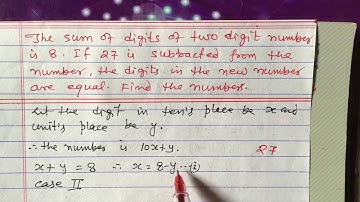 The sum of digits of two digit number
is 8. If 27 is subtracted from the
number, the digits in the new number
are equal. Find the number.
Let the digit in ten's place be x and
unit's place be y.
∴ the number is 10x+y. 27
x + y = 8 ∴ x = 8-y ...(i)
case II